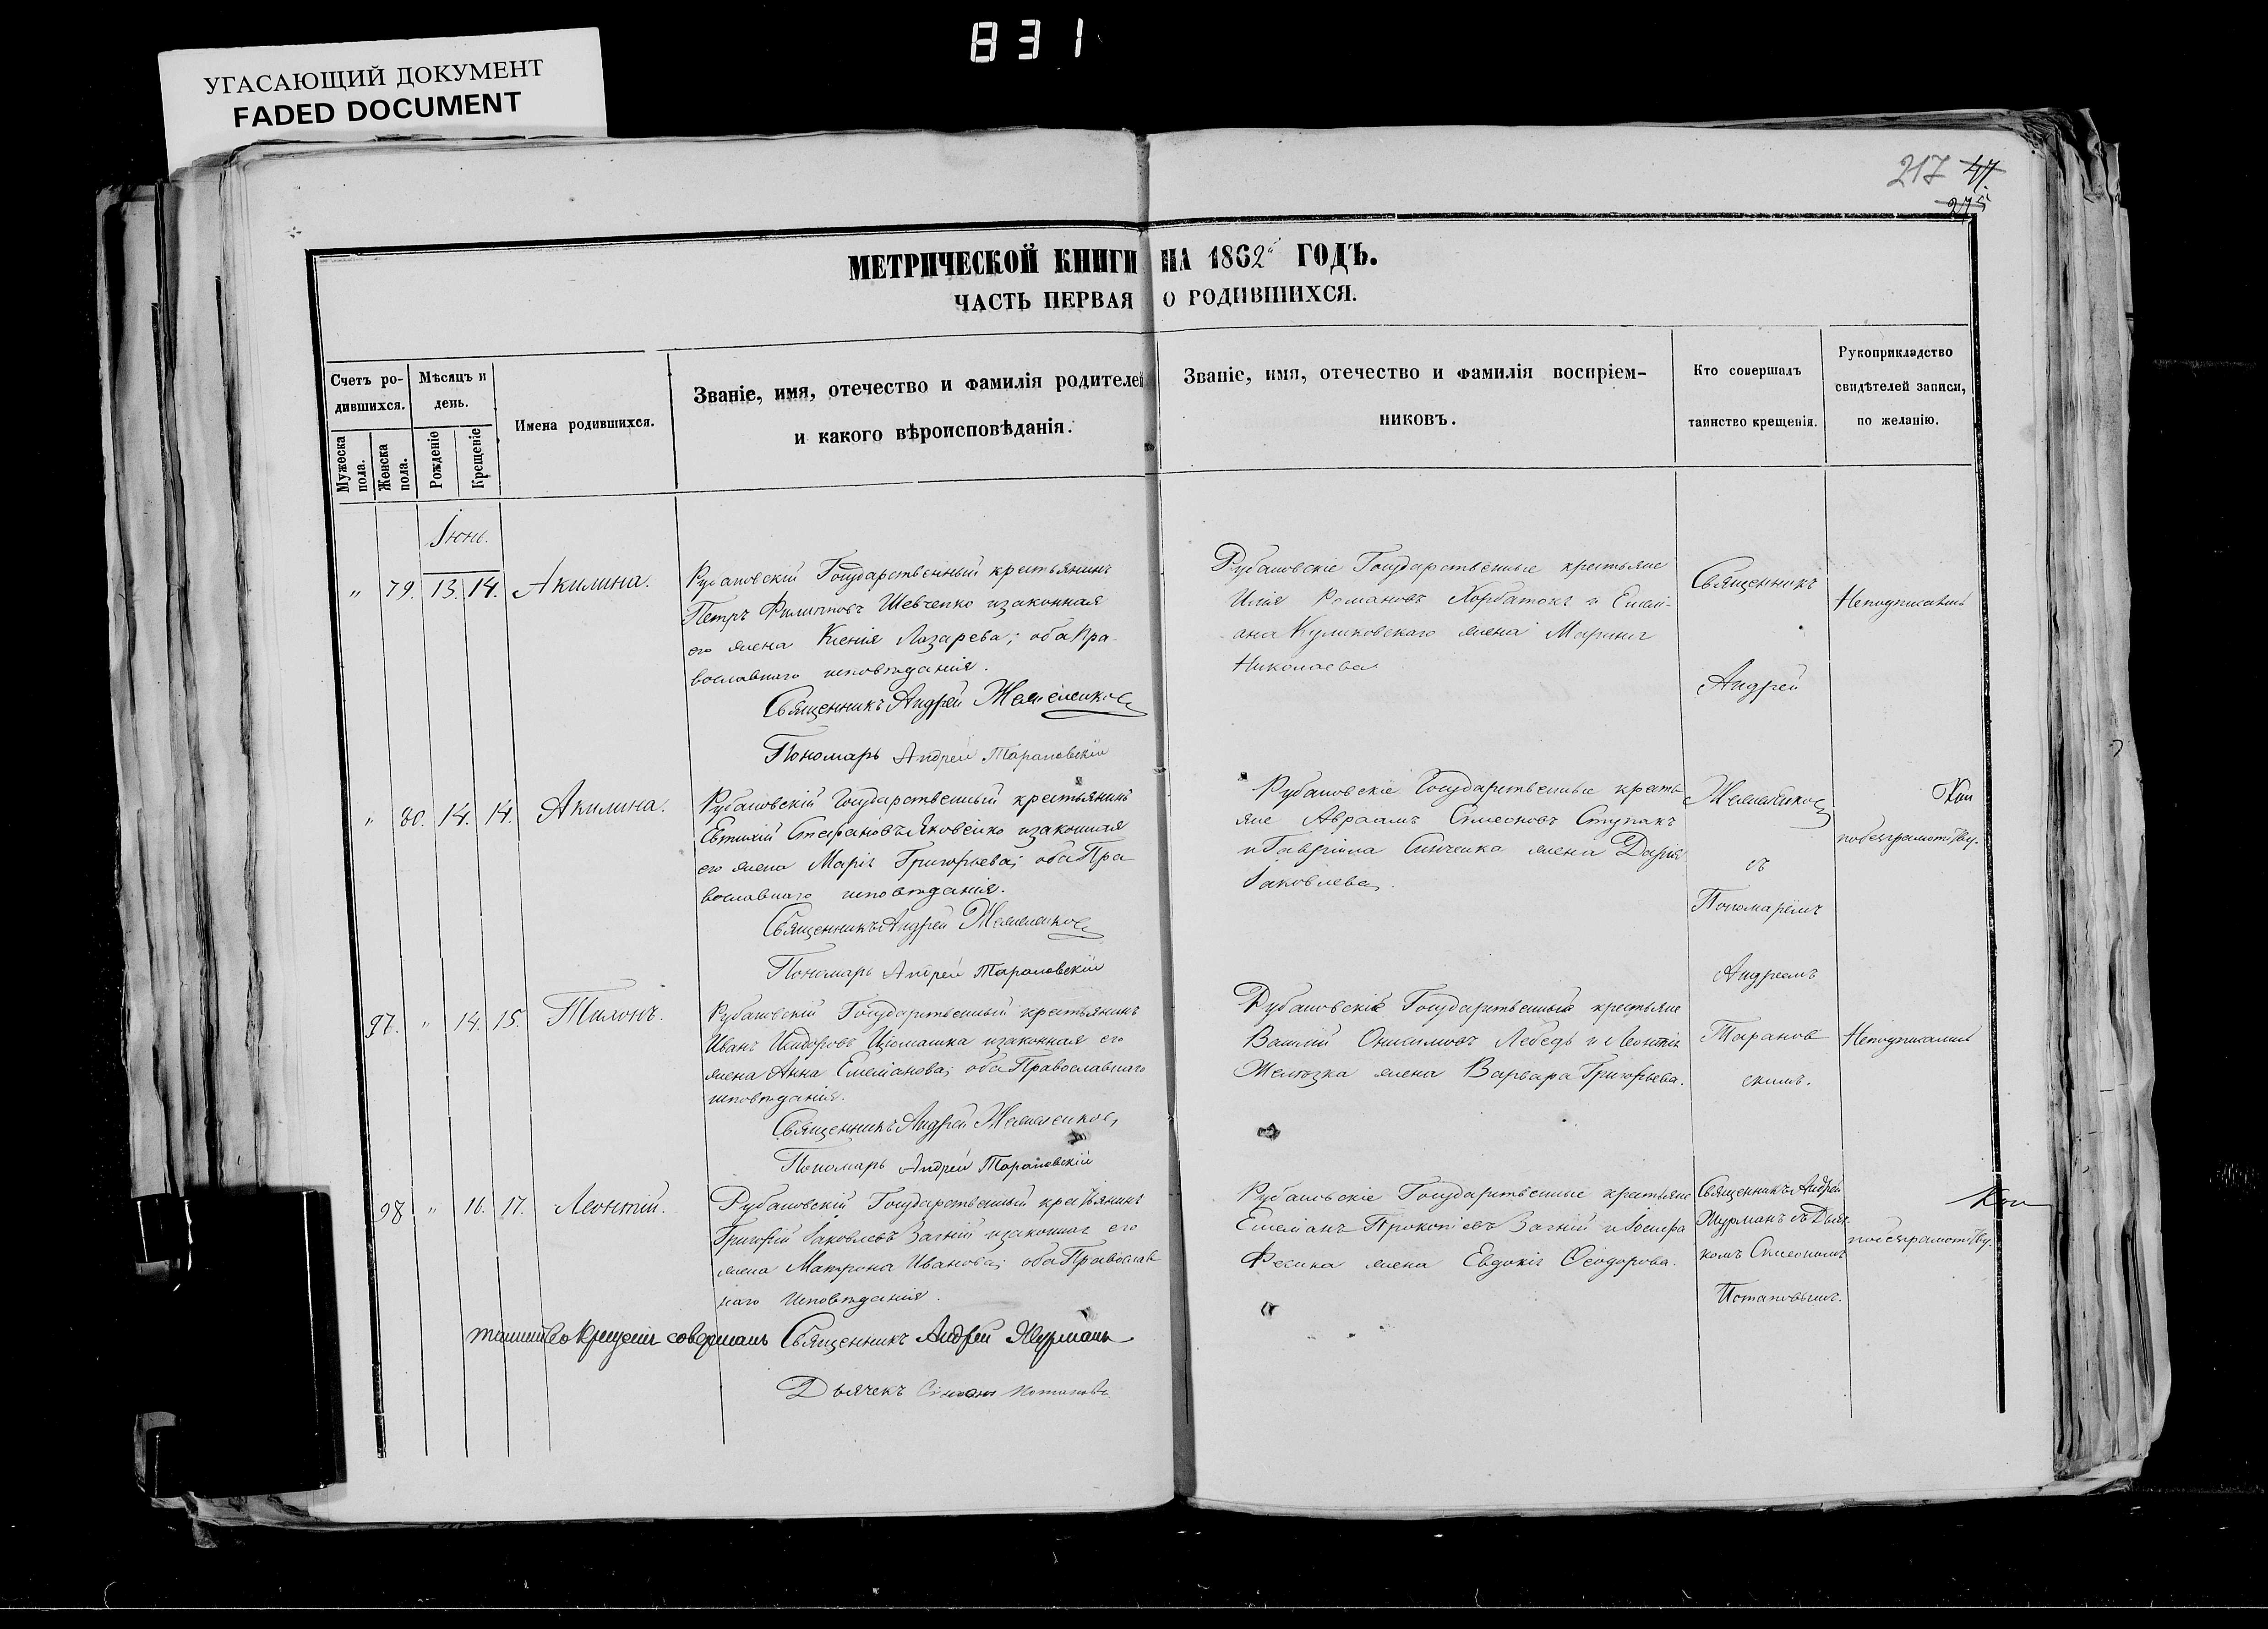 831
УГАСАЮЩИЙ ДОКУМЕНТ
FADED DOCUMENT
217 47
275
МЕТРИЧЕСКОЙ КНИГИ НА 1862й ГОДЪ.
ЧАСТЬ ПЕРВАЯ О РОДИВШИХСЯ.
Счетъ ро-
дившихся.
Мужеска пола.
Женска пола.
Мѣсяцъ и
день.
Рожденіе
Крещеніе
Имена родившихся.
Званіе, имя, отечество и фамилія родителей
и какого вѣроисповѣданія.
Званіе, имя, отечество и фамилія воспріем-
никовъ.
Кто совершалъ
таинство крещенія.
Рукоприкладство
свидѣтелей записи,
по желанію.
Іюнь.
" 79. 13. 14. Акилина.
Рубановскій Государственный крестьянинъ
Петръ Филипповъ Шевченко изаконная
его жена Ксенія Лазарева; оба Пра
вославнаго исповѣданія.
Священникъ Андрей
Пономарь Андрей Тарановскій
Рубановскіе Государственные крестьяне
Илія Романовъ Хорбатокъ и Емелі-
ана Куликовскаго жена Марина
Николаева
Священникъ
Андрей
Неподписались
" 80. 14. 14. Акилина.
Рубановскій Государственный крестьянинъ
Евтихій Стефановъ Яковенко изаконная
его жена Марія Григорьева; оба Пра
вославнаго исповѣданія.
Священникъ Андрей
Пономарь Андрей Тарановскій
Рубановскіе Государственные кресть
яне Авраамъ Симеоновъ Ступакъ
и Гавріила Синченка жена Дарія
Іаковлева.
съ
Пономаремъ
Андреемъ
Таранов
скимъ.
побезграмотству.
97. " 14. 15. Тихонъ.
Рубановскій Государственный крестьянинъ
Иванъ Исидоровъ Цюмашка изаконная его
жена Анна Емеліанова; оба Православнаго
исповѣданія.
Священникъ Андрей
Пономарь Андрей Тарановскій
Рубановскіе Государственные крестьяне
Василій Онисимовъ Лебедь и Леонтія
жена Варвара Григорьева.
Неподписались
98 " 16. 17. Леонтій.
Рубановскій Государственный крестьянинъ
Григорій Іаковлевъ Вагній изаконная его
жена Матрона Иванова; оба Православ
наго Исповѣданія.
таинство крещенія совершалъ Священникъ Андрей Журманъ
Дьячекъ Симеонъ Потаповъ
Рубановскіе Государственные крестьяне
Емеліанъ Прокопіевъ Вагній и Іосифа
Фесика жена Евдокія Ѳеодорова.
Священникъ Андрей
Журманъ съ Дьяч
комъ Симеономъ
Потаповымъ.
побезграмотству.